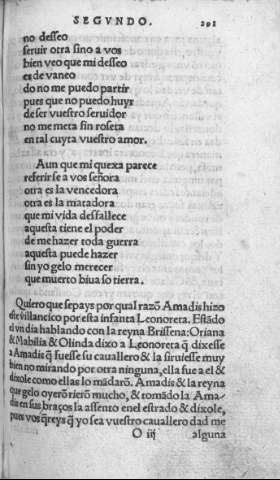 SEGVNDO. 291
no desseo
seruir otra sino a vos
bien veo que mi desseo
es de vaneo
do no me puedo partir
pues que no puedo huyr
de ser vuestro seruidor
no me meta sin roseta
en tal cuyta vuestro amor.
Aun que mi quexa parece
referirse a vos señora
otra es la vencedora
otra es la matadora
que mi vida desfallece
aquesta tiene el poder
de me hazer toda guerra
aquesta puede hazer
sin yo gelo merecer
que muerto biua so tierra.
Quiero que sepays por qual razō Amadis hizo
este villancico por esta infanta Leonoreta. Estādo
el vn dia hablando con la reyna Brisena: Oriana
& Mabilia & Olinda dixo a Leonoreta q̄ dixesse
a Amadis q̄ fuesse su cauallero & la siruiesse muy
bien no mirando por otra ninguna, ella fue a el &
dixole como ellas lo mādarō. Amadis & la reyna
que gelo oyerō rierō mucho, & tomādo la Ama-
dis en sus braços la assento en el estrado & dixole,
pues vos q̄reys q̄ yo sea vuestro cauallero dad me
O iij alguna